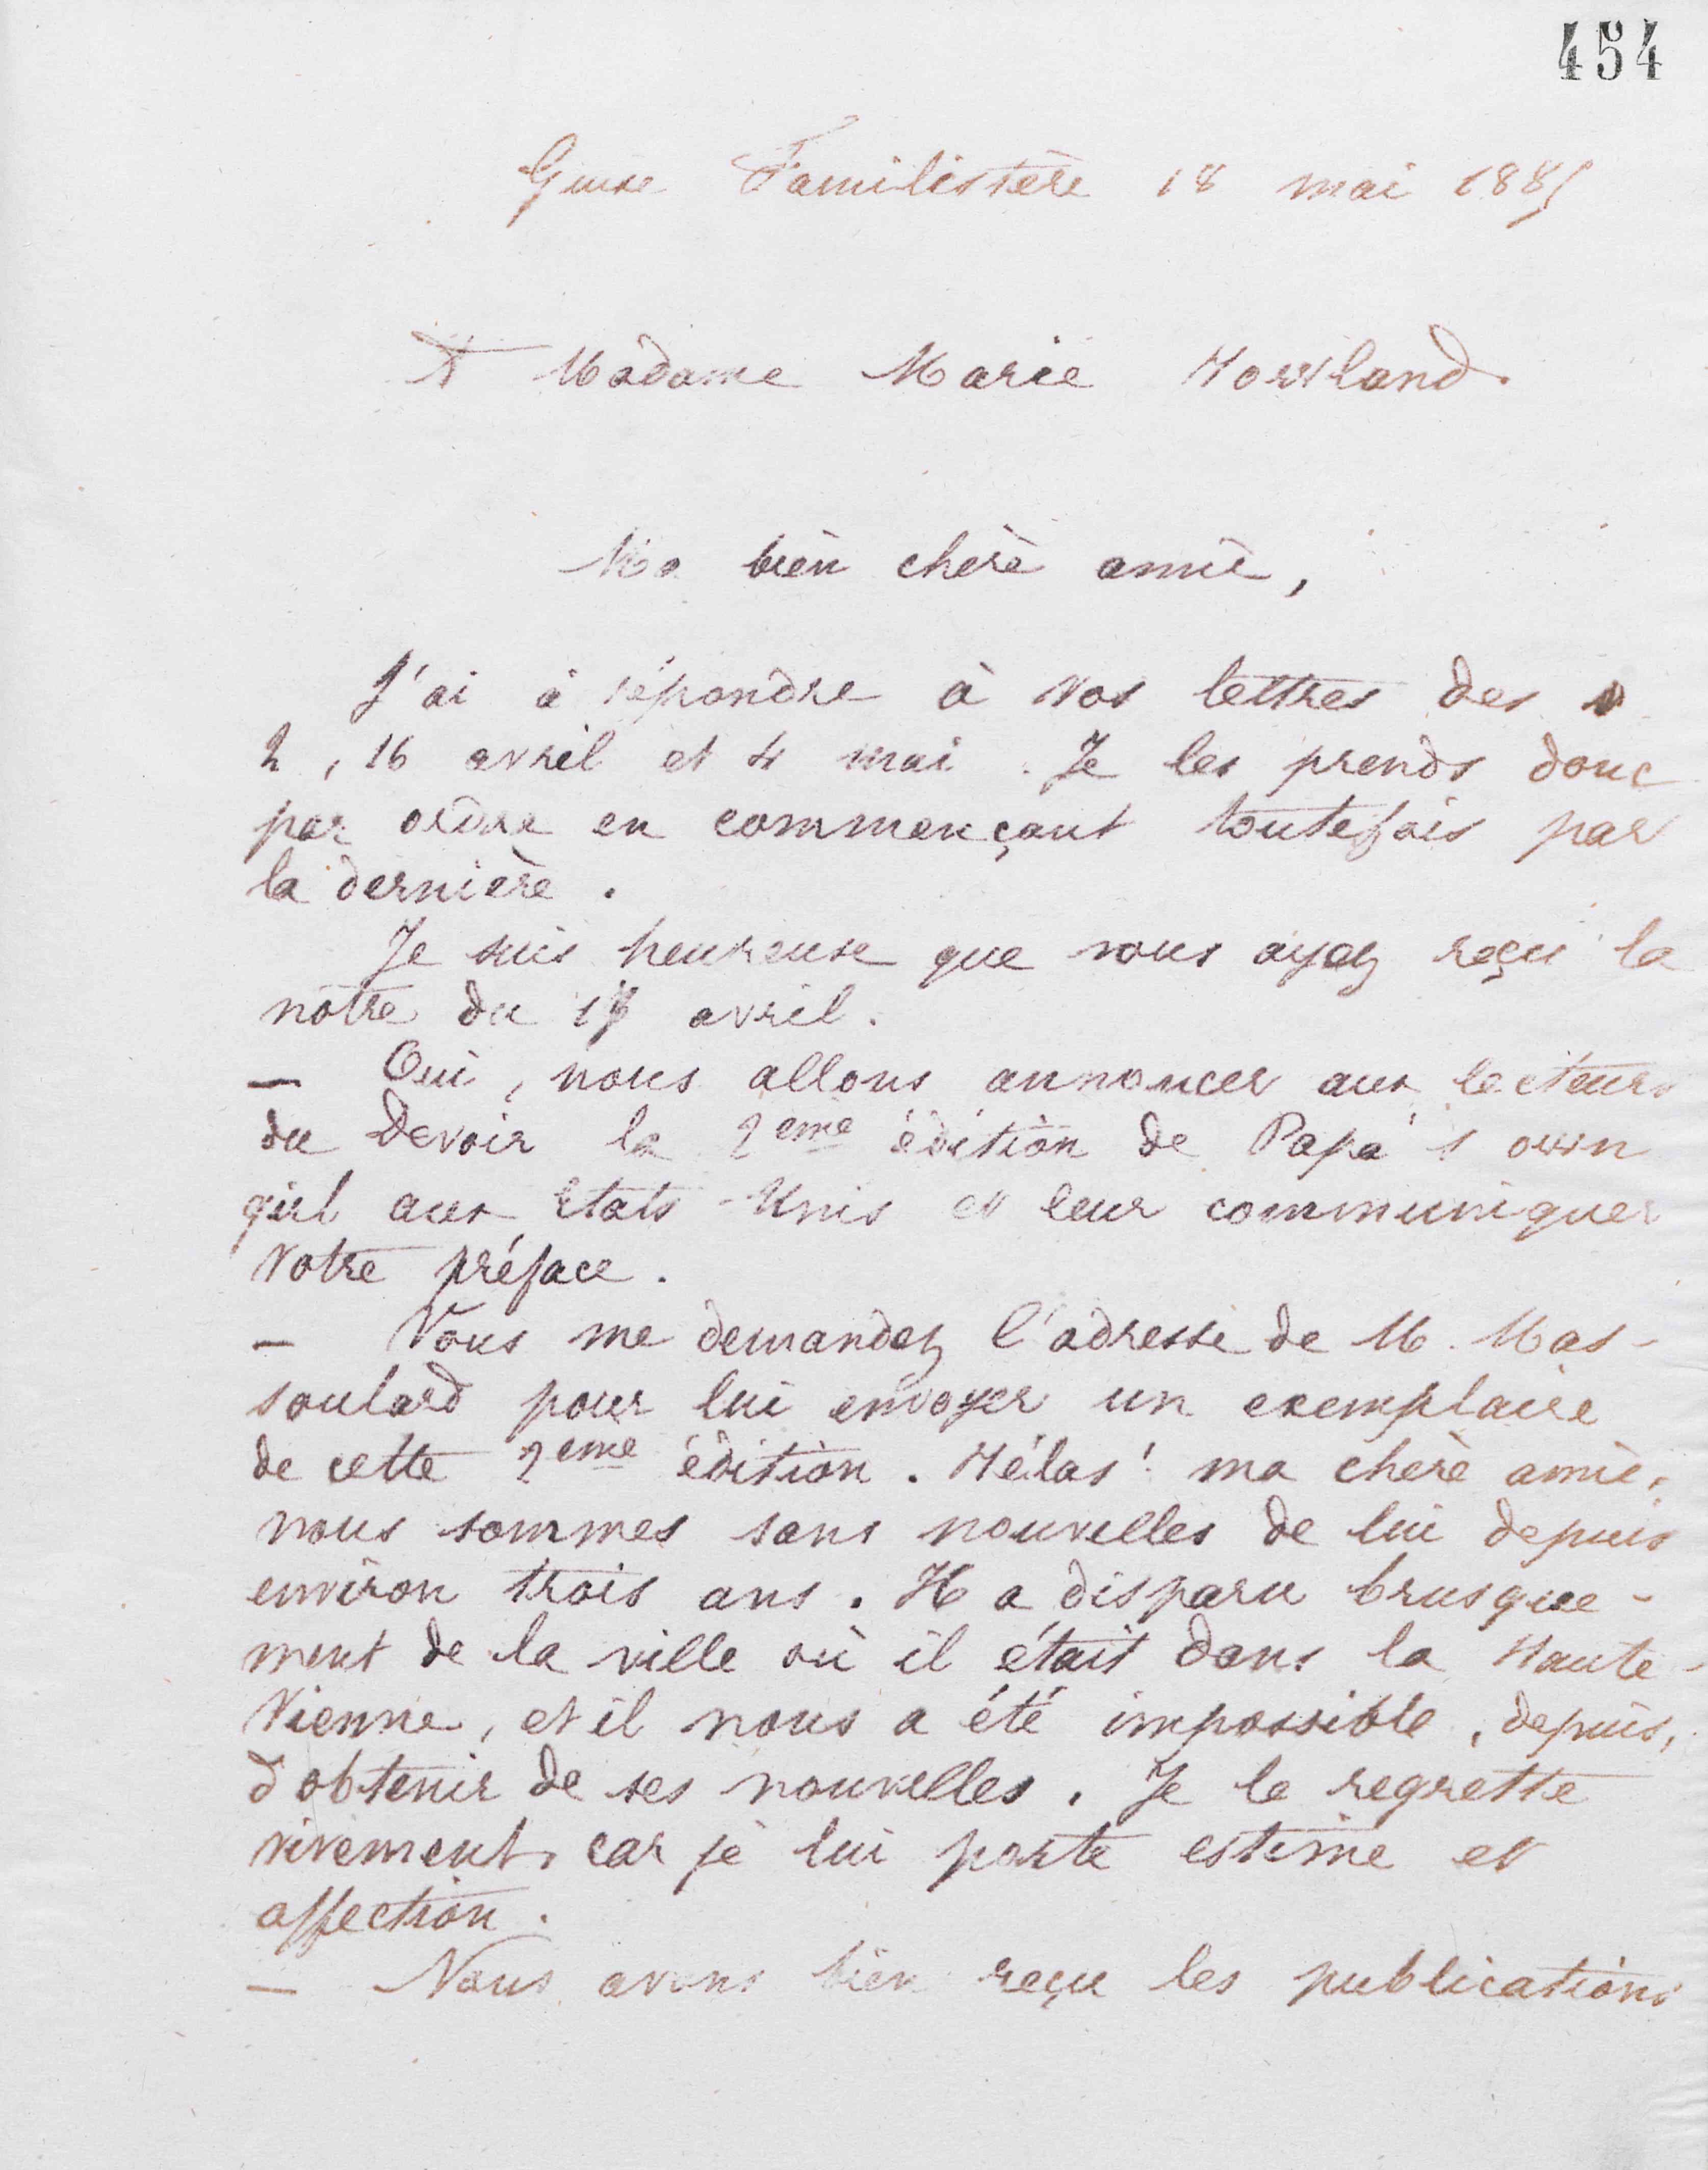 454
Guise Familistère 18 mai 1885
A Madame Marie Howland.
Ma bien chère amie,
J'ai à répondre à vos lettres des
2, 16 avril et 4 mai. Je les prends donc
par ordre en commençant toutefois par
la dernière.
Je suis heureuse que vous ayez reçu la
nôtre du 17 avril.
— Oui, nous allons annoncer aux lecteurs
du Devoir la 2eme édition de Papa's own
girl aux Etats-Unis et leur communiquer
votre préface.
— Vous me demandez l'adresse de M. Mas-
soulard pour lui envoyer un exemplaire
de cette 2eme édition. Hélas! ma chère amie,
nous sommes sans nouvelles de lui depuis
environ trois ans. Il a disparu brusque-
ment de la ville où il était dans la Haute-
Vienne, et il nous a été impossible, depuis,
d'obtenir de ses nouvelles. Je le regrette
vivement, car je lui porte estime et
affection.
— Nous avons bien reçu les publications